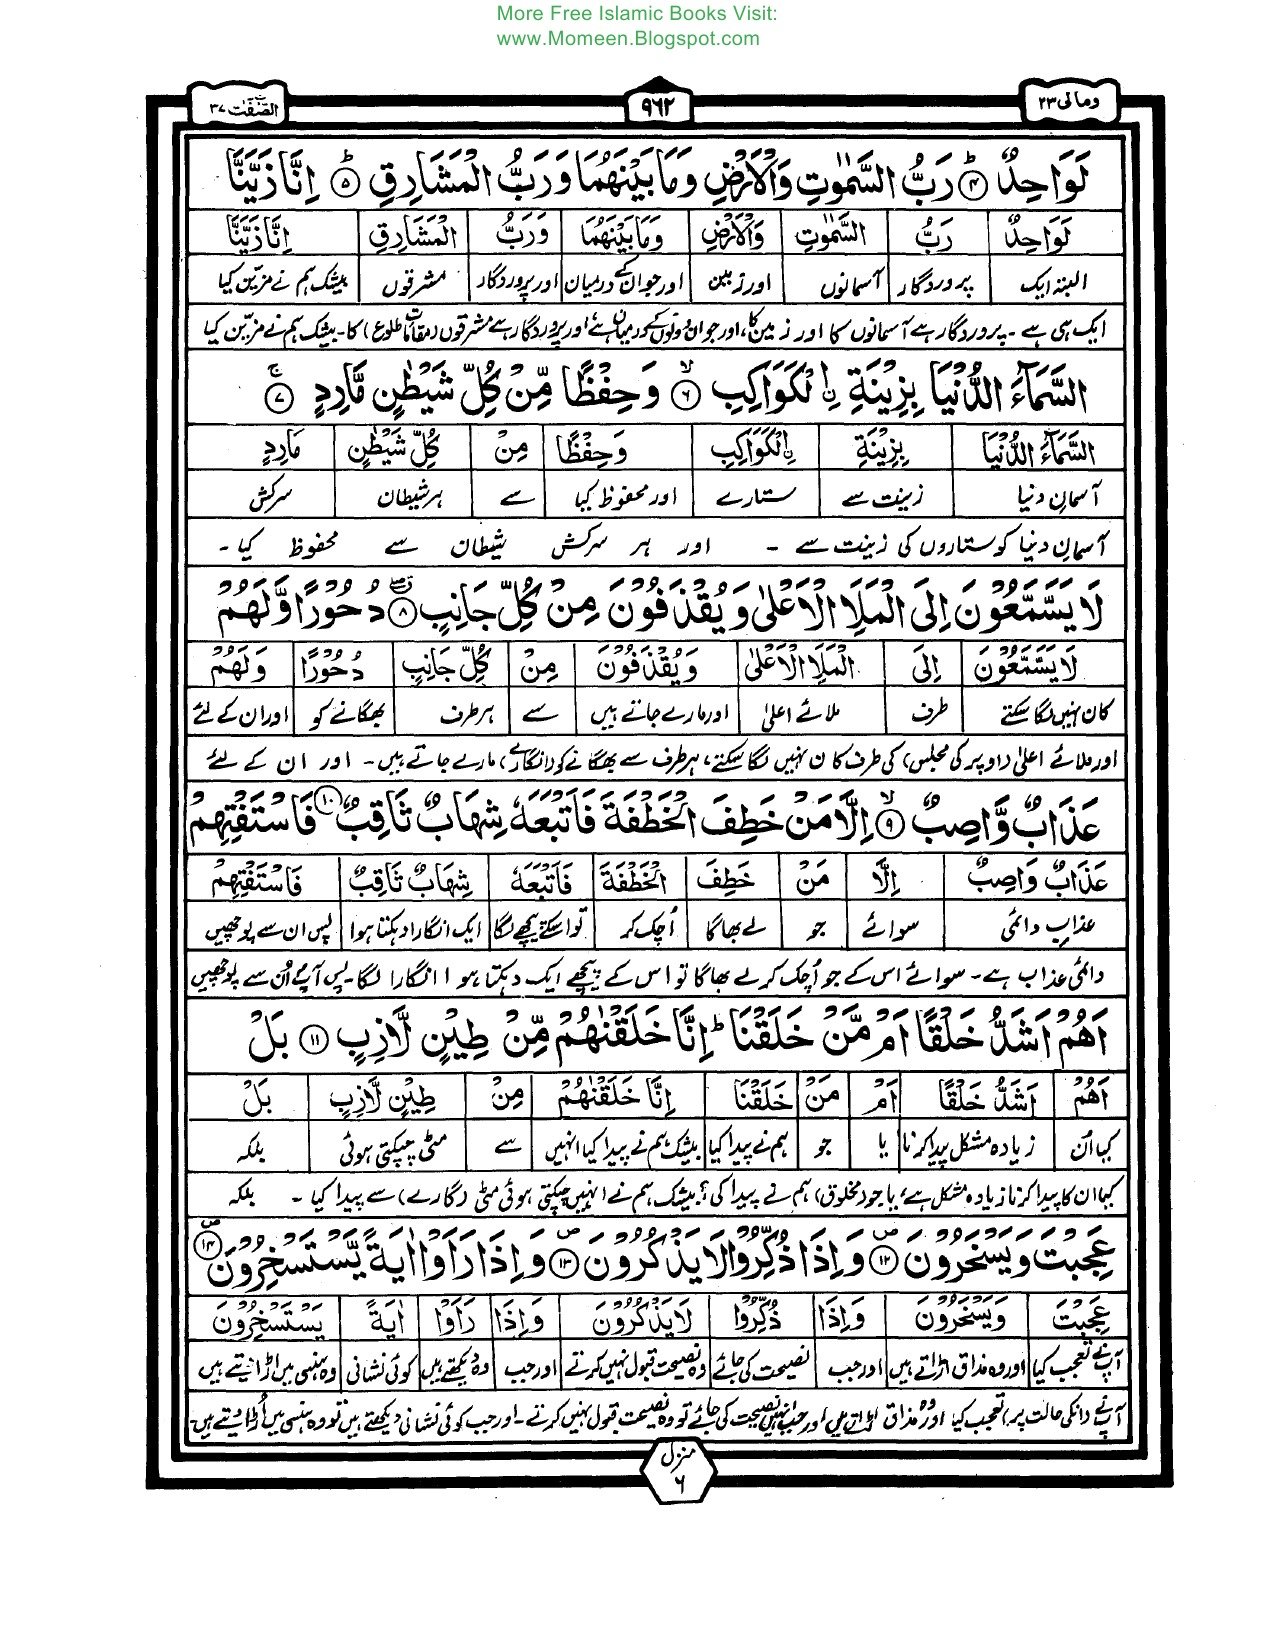 More Free Islamic Books Visit:
www.Momeen.Blogspot.com
ومالی ۲۳
۹۶۲
الصّٰٓفّٰت ۳۷
لَوَاحِدٌ ۴ رَبُّ السَّمٰوٰتِ وَالْاَرْضِ وَمَا بَيْنَهُمَا وَرَبُّ الْمَشَارِقِ ۵ اِنَّا زَيَّنَّا
لَوَاحِدٌ رَبُّ السَّمٰوٰتِ وَالْاَرْضِ وَمَا بَيْنَهُمَا وَرَبُّ الْمَشَارِقِ اِنَّا زَيَّنَّا
البتہ ایک پروردگار آسمانوں اور زمین اور جو ان کے درمیان اور پروردگار مشرقوں بیشک ہم نے مزیّن کیا
ایک ہی ہے۔ پروردگار ہے آسمانوں کا اور زمین کا، اور جو ان دونوں کے درمیان ہے اور پروردگار ہے مشرقوں (مقاماتِ طلوع) کا۔ بیشک ہم نے مزیّن کیا
السَّمَآءَ الدُّنْيَا بِزِيْنَةِ ِۨالْكَوَاكِبِ ۶ وَحِفْظًا مِّنْ كُلِّ شَيْطٰنٍ مَّارِدٍ ۷
السَّمَآءَ الدُّنْيَا بِزِيْنَةِ ِۨالْكَوَاكِبِ وَحِفْظًا مِنْ كُلِّ شَيْطٰنٍ مَارِدٍ
آسمانِ دنیا زینت سے ستارے اور محفوظ کیا سے ہر شیطان سرکش
آسمانِ دنیا کو ستاروں کی زینت سے ۔ اور ہر سرکش شیطان سے محفوظ کیا ۔
لَا يَسَّمَّعُوْنَ اِلَى الْمَلَاِ الْاَعْلٰى وَيُقْذَفُوْنَ مِنْ كُلِّ جَانِبٍ ۸ دُحُوْرًا وَّلَهُمْ
لَا يَسَّمَّعُوْنَ اِلَى الْمَلَاِ الْاَعْلٰى وَيُقْذَفُوْنَ مِنْ كُلِّ جَانِبٍ دُحُوْرًا وَلَهُمْ
کان نہیں لگا سکتے طرف ملائے اعلیٰ اور مارے جاتے ہیں سے ہر طرف بھگانے کو اور ان کے لئے
اور ملائے اعلیٰ (اوپر کی مجلس) کی طرف کان نہیں لگا سکتے، ہر طرف سے بھگانے کو (انگارے) مارے جاتے ہیں۔ اور ان کے لئے
عَذَابٌ وَّاصِبٌ ۹ اِلَّا مَنْ خَطِفَ الْخَطْفَةَ فَاَتْبَعَهٗ شِهَابٌ ثَاقِبٌ ۱۰ فَاسْتَفْتِهِمْ
عَذَابٌ وَاصِبٌ اِلَّا مَنْ خَطِفَ الْخَطْفَةَ فَاَتْبَعَهٗ شِهَابٌ ثَاقِبٌ فَاسْتَفْتِهِمْ
عذابِ دائمی سوائے جو لے بھاگا اُچک کر تو اسکے پیچھے لگا ایک انگارا دہکتا ہوا پس ان سے پوچھیں
دائمی عذاب ہے۔ سوائے اس کے جو اُچک کر لے بھاگا تو اس کے پیچھے ایک دہکتا ہوا انگارا لگا۔ پس آپ اُن سے پوچھیں
اَهُمْ اَشَدُّ خَلْقًا اَمْ مَّنْ خَلَقْنَا اِنَّا خَلَقْنٰهُمْ مِّنْ طِيْنٍ لَّازِبٍ ۱۱ بَلْ
اَهُمْ اَشَدُّ خَلْقًا اَمْ مَنْ خَلَقْنَا اِنَّا خَلَقْنٰهُمْ مِنْ طِيْنٍ لَّازِبٍ بَلْ
کیا اُن زیادہ مشکل پیدا کرنا یا جو ہم نے پیدا کیا بیشک ہم نے پیدا کیا انہیں سے مٹی چپکتی ہوئی بلکہ
کیا ان کا پیدا کرنا زیادہ مشکل ہے، یا جو (مخلوق) ہم نے پیدا کی؟ بیشک ہم نے انہیں چپکتی ہوئی مٹی (گارے) سے پیدا کیا ۔ بلکہ
عَجِبْتَ وَيَسْخَرُوْنَ ۱۲ وَاِذَا ذُكِّرُوْا لَا يَذْكُرُوْنَ ۱۳ وَاِذَا رَاَوْا اٰيَةً يَّسْتَسْخِرُوْنَ ۱۴
عَجِبْتَ وَيَسْخَرُوْنَ وَاِذَا ذُكِّرُوْا لَا يَذْكُرُوْنَ وَاِذَا رَاَوْا اٰيَةً يَسْتَسْخِرُوْنَ
آپ نے تعجب کیا اور وہ مذاق اڑاتے ہیں اور جب نصیحت کی جائے وہ نصیحت قبول نہیں کرتے اور جب وہ دیکھتے ہیں کوئی نشانی وہ ہنسی میں اڑا دیتے ہیں
آپ نے (ان کی حالت پر) تعجب کیا اور وہ مذاق اڑاتے ہیں اور جب انہیں نصیحت کی جائے تو وہ نصیحت قبول نہیں کرتے۔ اور جب کوئی نشانی دیکھتے ہیں تو وہ ہنسی میں اُڑا دیتے ہیں
منزل
۶